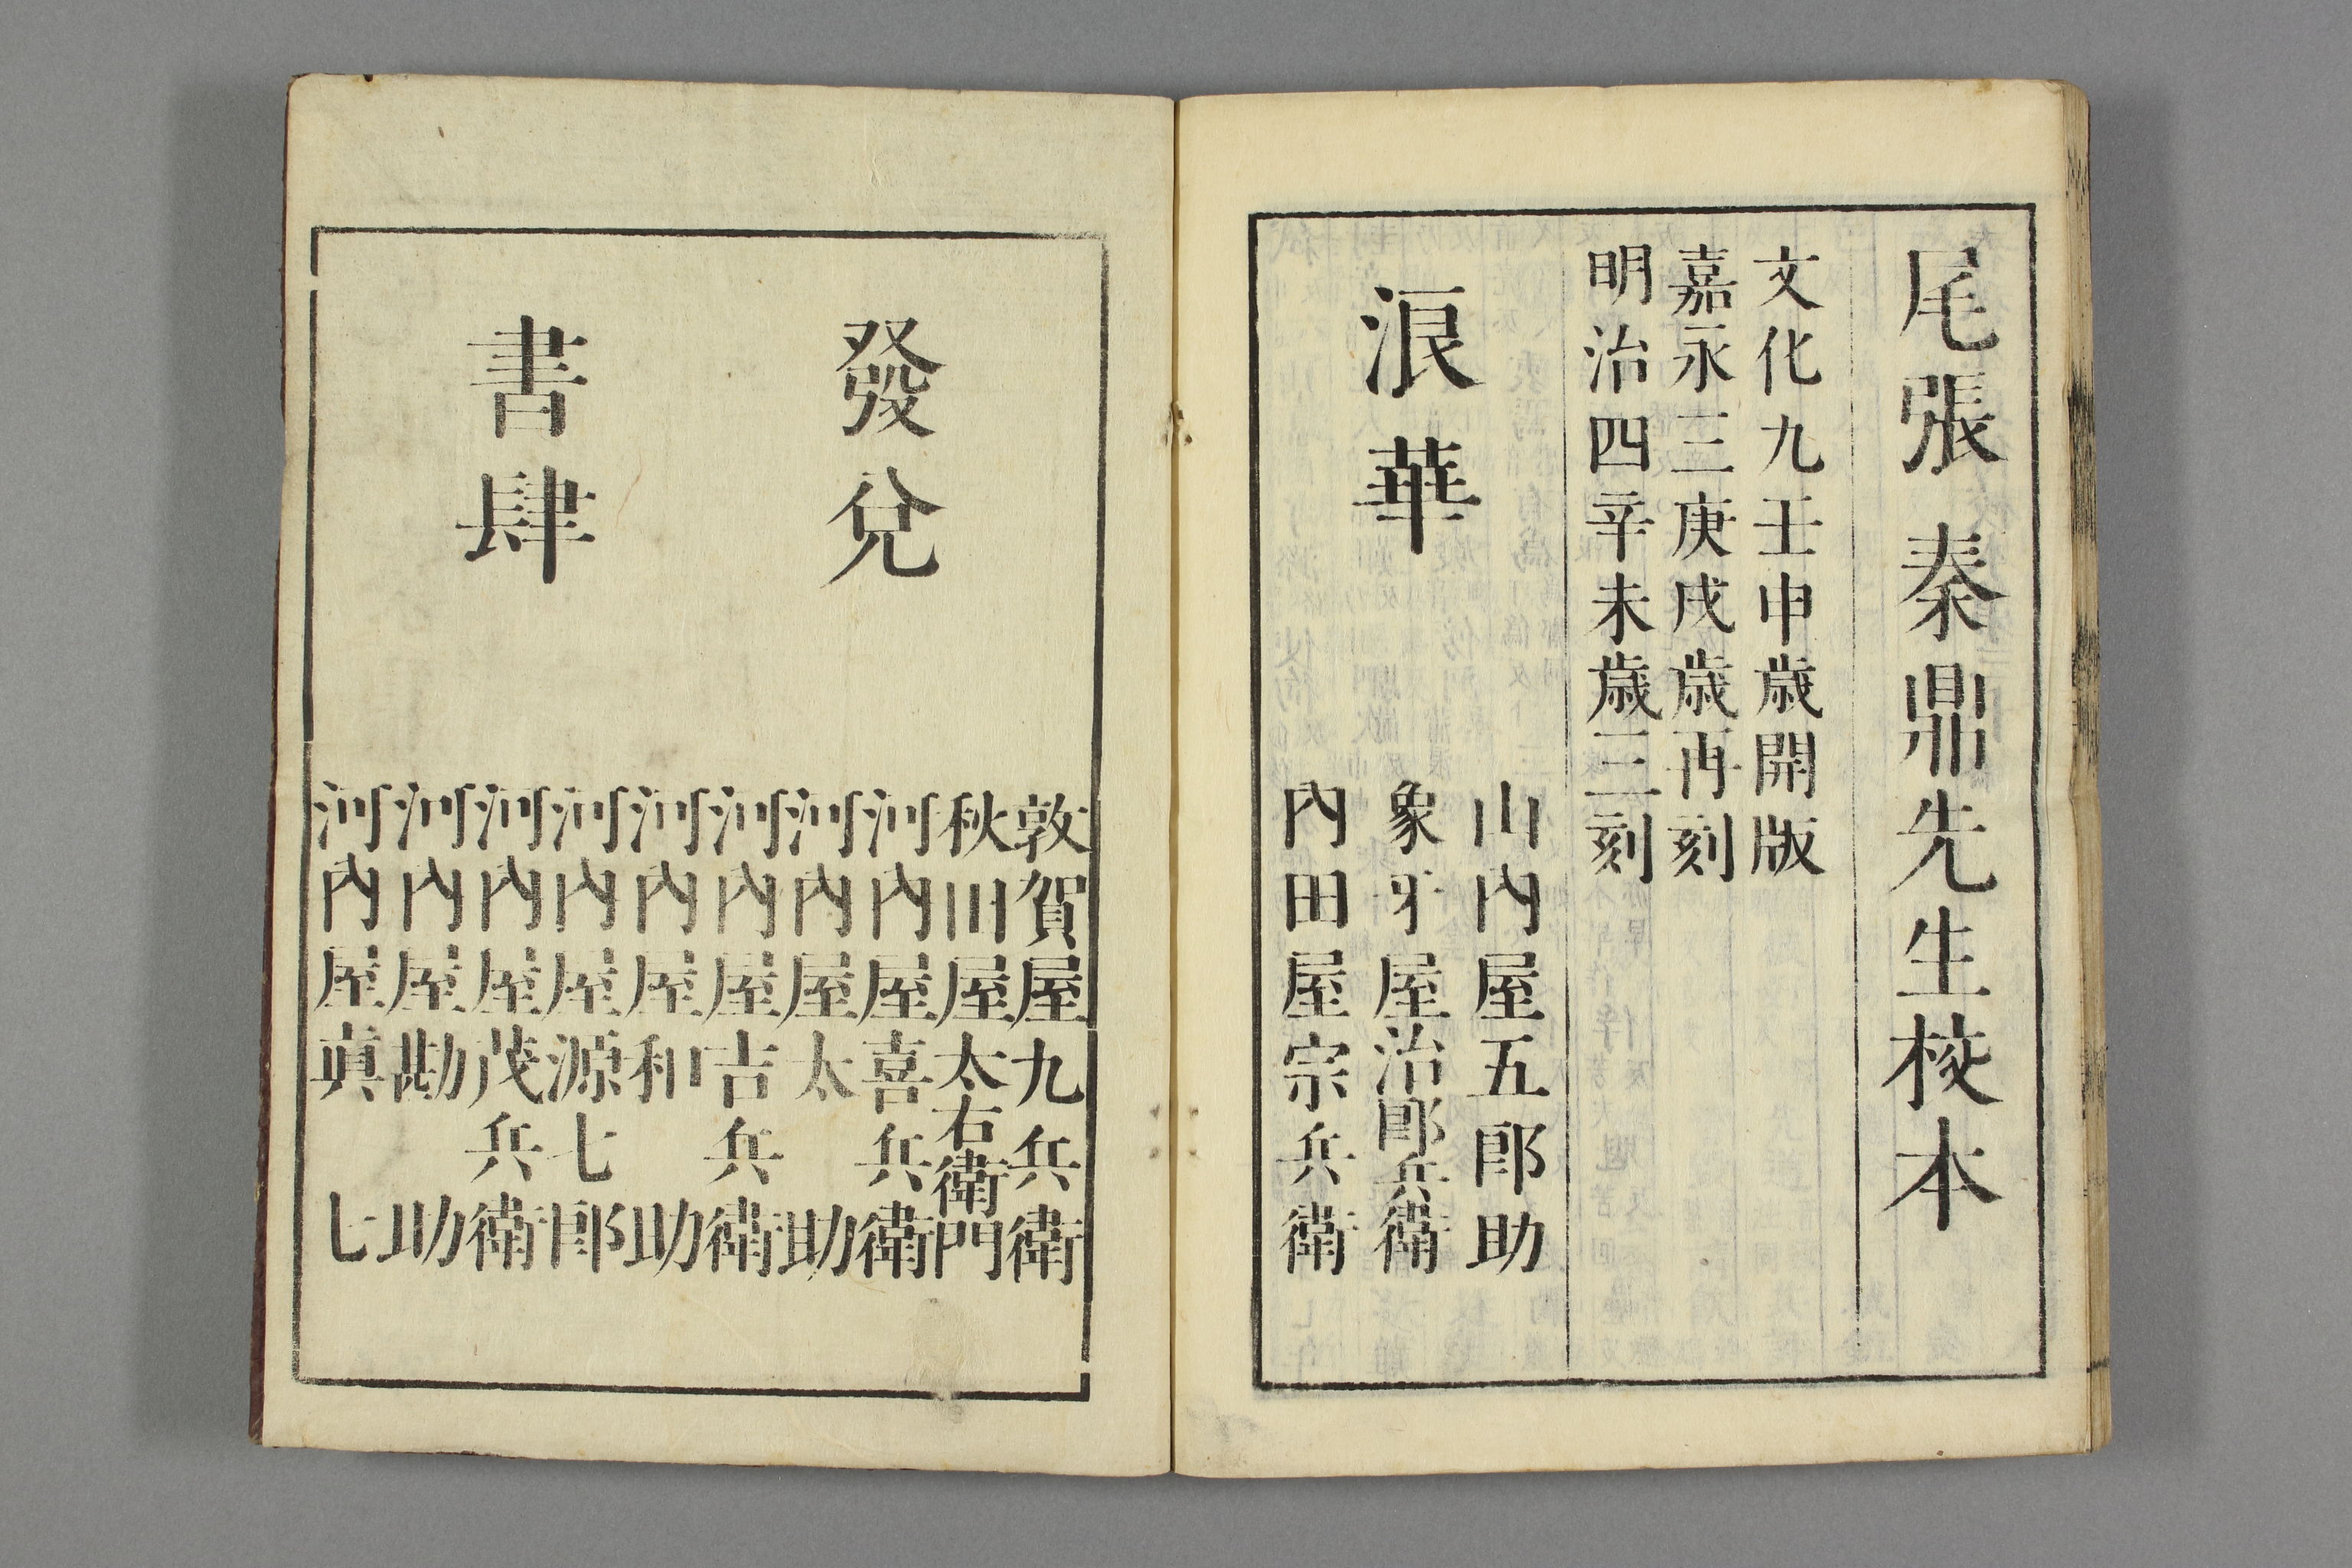 尾張 秦鼎先生校本
文化九壬申歳開版
嘉永三庚戌歳再刻
明治四辛未歳三刻
浪華
山内屋五郎助
象牙屋治郎兵衛
内田屋宗兵衛
發兌
書肆
敦賀屋九兵衛
秋田屋太右衛門
河内屋喜兵衛
河内屋太助
河内屋吉兵衛
河内屋和助
河内屋源七郎
河内屋茂兵衛
河内屋勘助
河内屋真七